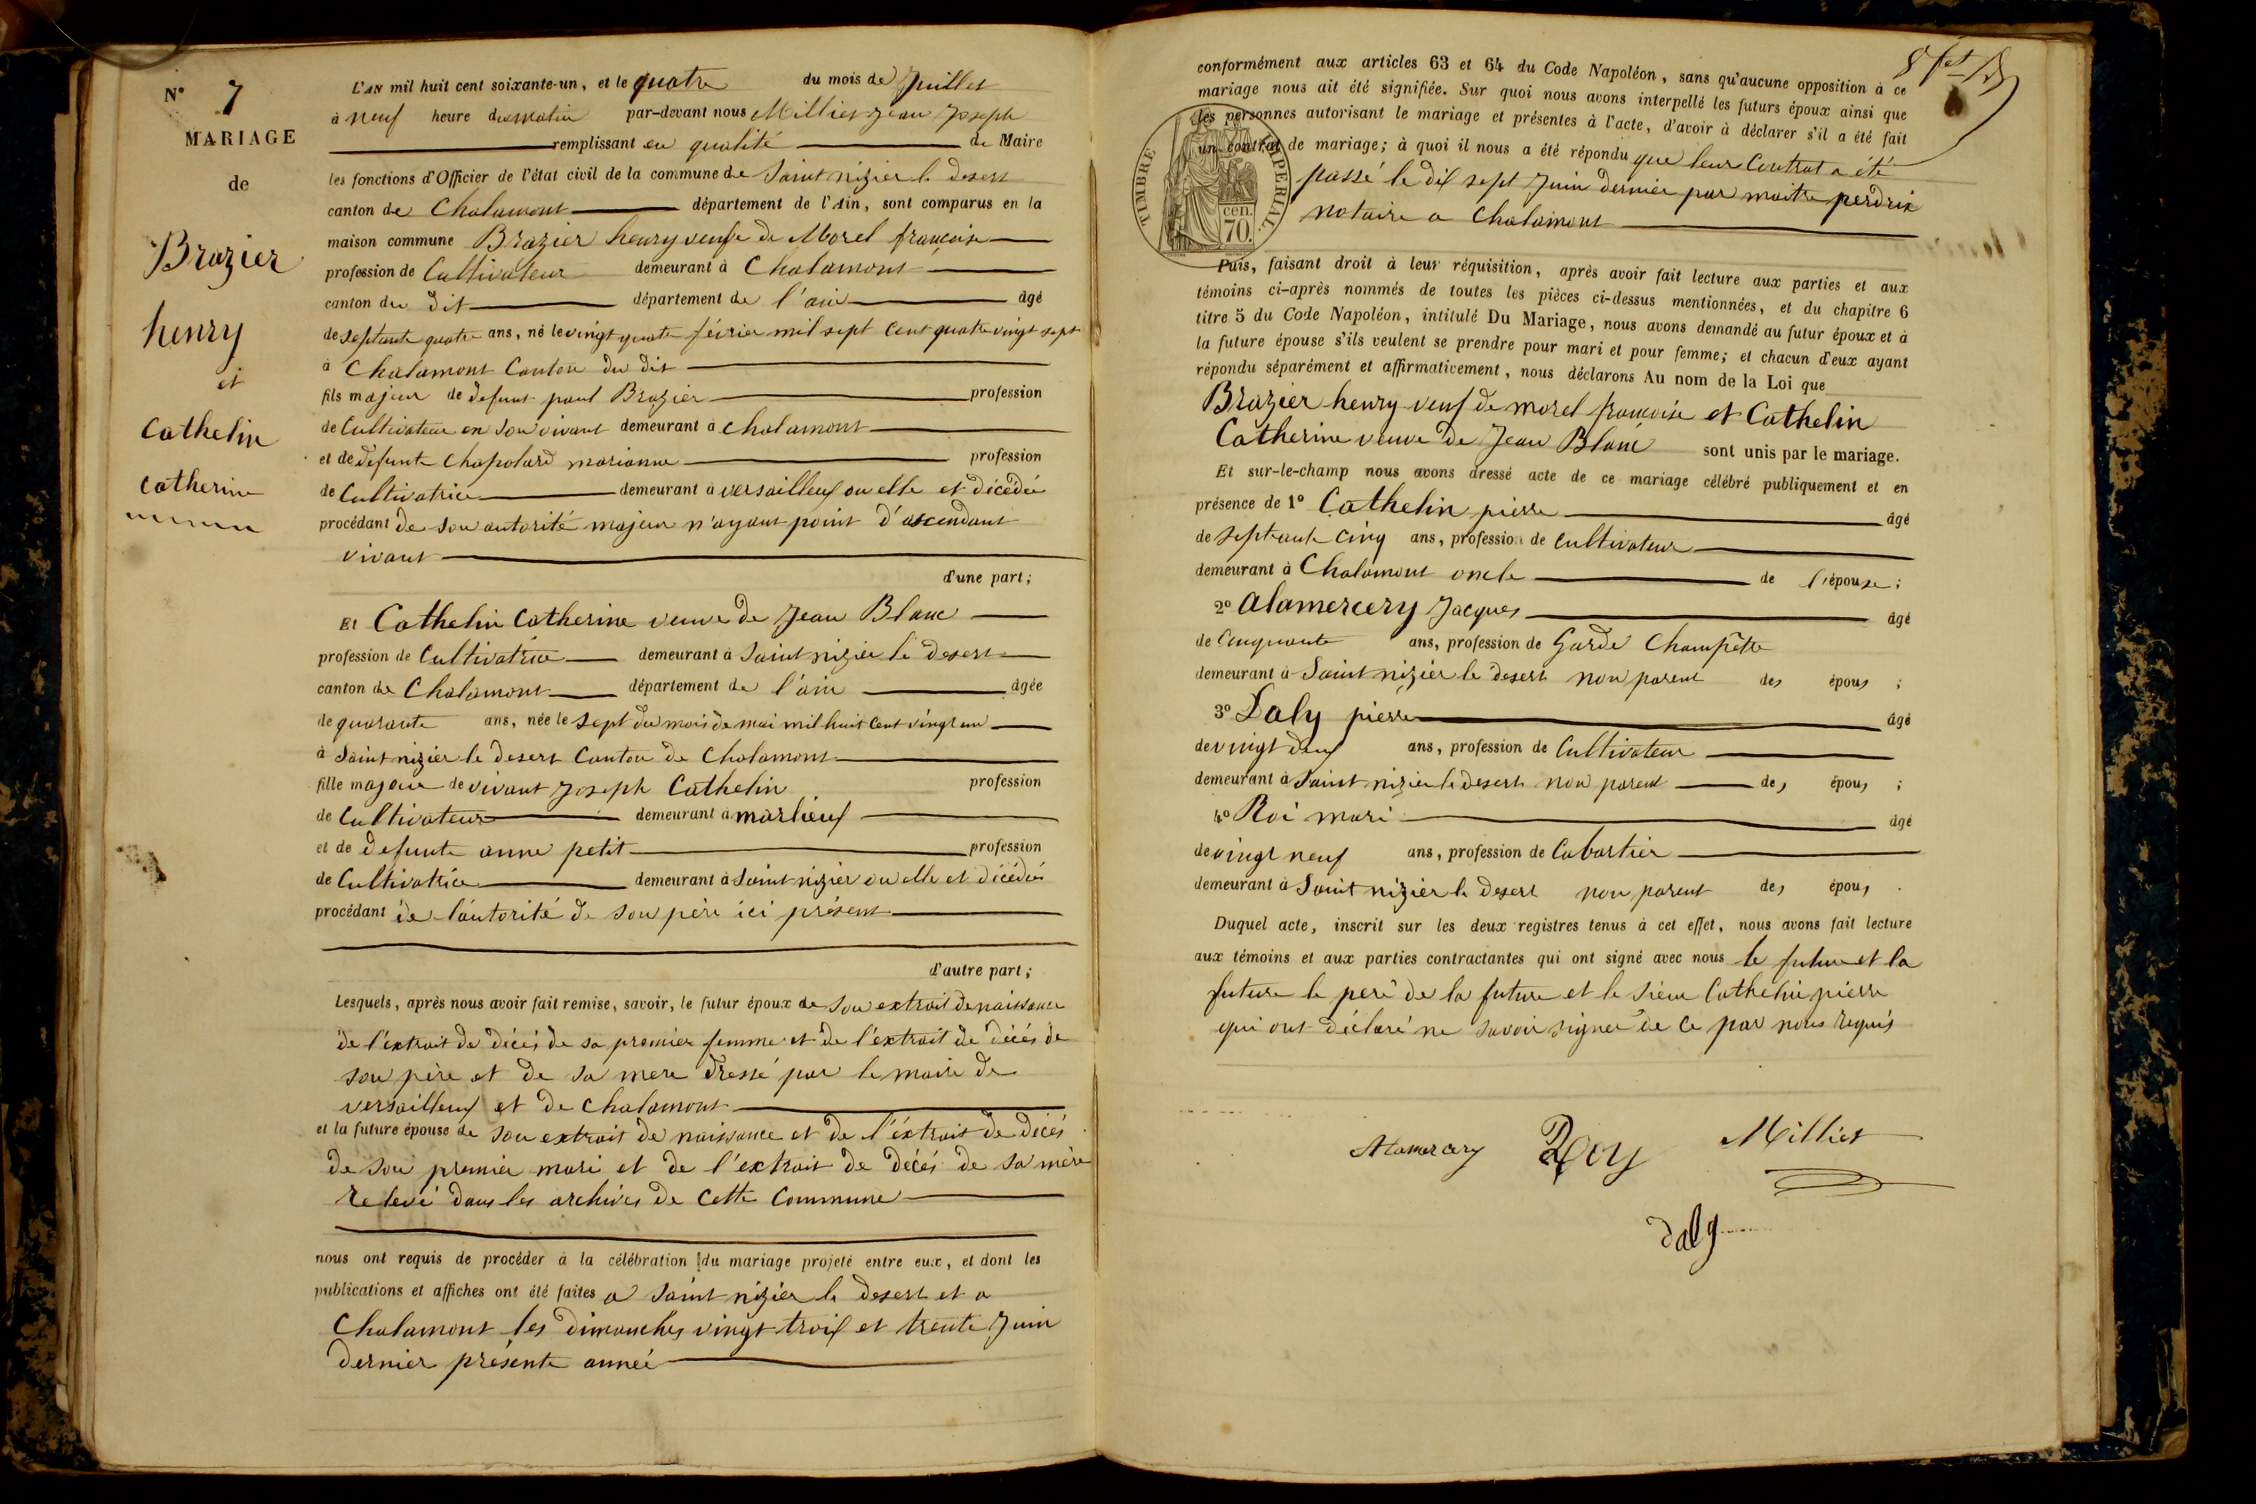 N° 7
MARIAGE
de
Brazier
henry
et
Cathelin
catherine
L'AN mil huit cent soixante-un, et le quatre du mois de Juillet
à neuf heure du matin par-devant nous Milliet Jean Joseph
remplissant en qualité de Maire
les fonctions d'Officier de l'état civil de la commune de Saint nizier le desert
canton de Chalamont département de l'Ain, sont comparus en la
maison commune Brazier henry veuf de Morel françoise
profession de Cultivateur demeurant à Chalamont
canton du dit département de l'ain âgé
de septante quatre ans, né le vingt quatre février mil sept cent quatre vingt sept
à Chalamont Canton du dit
fils majeur de defunt paul Brazier profession
de Cultivateur en son vivant demeurant à chalamont
et de defunte Chapolard marianne profession
de Cultivatrice demeurant à versailleux ou elle et décédée
procédant de son autorité majeur n'ayant point d'ascendant
vivant
d'une part;
Et Cathelin Catherine veuve de Jean Blanc
profession de Cultivatrice demeurant à Saint nizier le desert
canton de Chalamont département de l'ain âgée
de quarante ans, née le sept du mois de mai mil huit cent vingt un
à Saint nizier le desert Canton de Chalamont
fille majeur de vivant Joseph Cathelin profession
de Cultivateur demeurant à marlieux
et de defunte anne petit profession
de Cultivatrice demeurant à Saint nizier ou elle et décédée
procédant de l'autorité de son père ici présent
d'autre part;
Lesquels, après nous avoir fait remise, savoir, le futur époux de son extrait de naissance
de l'extrait de décés de sa premier femme et de l'éxtrait de décés de
son père et de sa mere dressé par le maire de
versailleux et de chalamont
et la future épouse de son extrait de naissance et de l'éxtrait de décés
de son premier mari et de l'extrait de décés de sa mère
relevé dans les archives de cette commune
nous ont requis de procéder à la célébration du mariage projeté entre eux, et dont les
publications et affiches ont été faites a Saint nizier le desert et a
Chalamont les dimanches vingt trois et trente Juin
dernier présente année
conformément aux articles 63 et 64 du Code Napoléon, sans qu'aucune opposition à ce
mariage nous ait été signifiée. Sur quoi nous avons interpellé les futurs époux ainsi que
les personnes autorisant le mariage et présentes à l'acte, d'avoir à déclarer s'il a été fait
un contrat de mariage; à quoi il nous a été répondu que leur Contrat a été
passé le dix sept Juin dernier par maitre perdrix
notaire a Chalamont
TIMBRE IMPERIAL.
cen.
70.
Puis, faisant droit à leur réquisition, après avoir fait lecture aux parties et aux
témoins ci-après nommés de toutes les pièces ci-dessus mentionnées, et du chapitre 6
titre 5 du Code Napoléon, intitulé Du Mariage, nous avons demandé au futur époux et à
la future épouse s'ils veulent se prendre pour mari et pour femme; et chacun d'eux ayant
répondu séparément et affirmativement, nous déclarons Au nom de la Loi que
Brazier henry veuf de morel françoise et Cathelin
Catherine veuve de Jean Blanc sont unis par le mariage.
Et sur-le-champ nous avons dressé acte de ce mariage célébré publiquement et en
présence de 1° Cathelin pierre âgé
de septante cinq ans, profession de cultivateur
demeurant à Chalamont oncle de l'épouse;
2° alamercery Jacques âgé
de Cinquante ans, profession de Garde Champêtre
demeurant à Saint nizier le desert non parent des époux;
3° Daly pierre âgé
de vingt deux ans, profession de Cultivateur
demeurant à Saint nizier le desert non parent des époux;
4° Roi mari âgé
de vingt neuf ans, profession de Cabartier
demeurant à Saint nizier le desert non parent des époux.
Duquel acte, inscrit sur les deux registres tenus à cet effet, nous avons fait lecture
aux témoins et aux parties contractantes qui ont signé avec nous le futur et la
future le peré de la future et le sieur Cathelin pierre
qui ont déclaré ne savoir signer de ce par nous requis
Alamercery Roy Milliet
daly